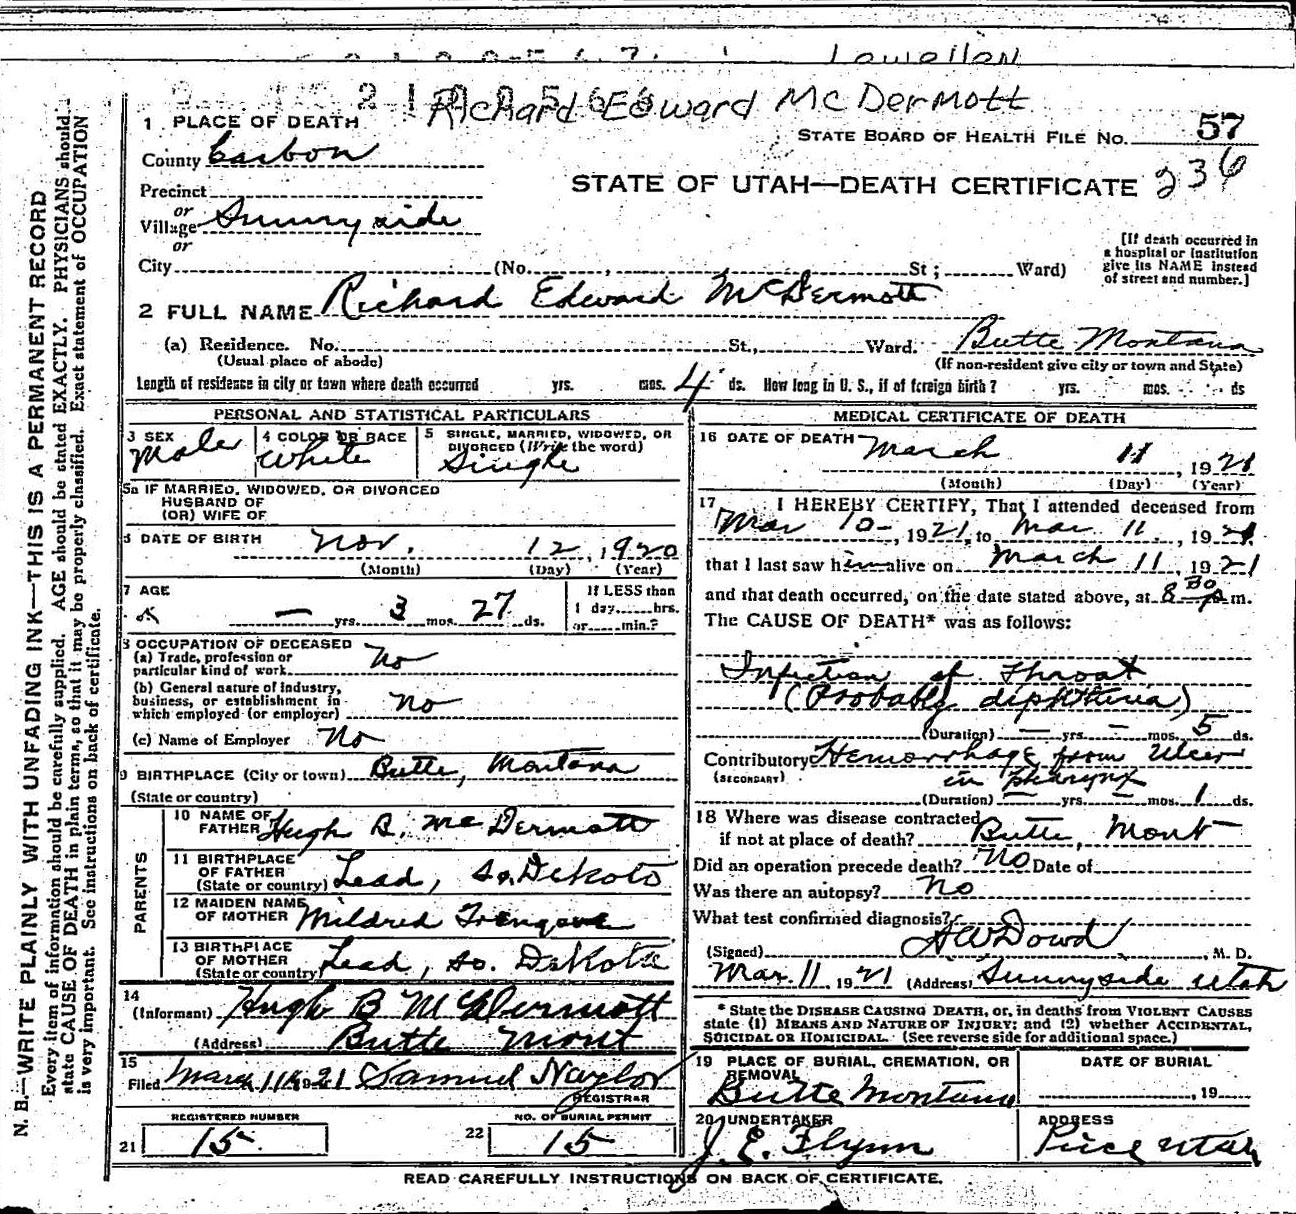 Lowellen
Richard Edward McDermott
1 PLACE OF DEATH
STATE BOARD OF HEALTH FILE No. 57
County Carbon
STATE OF UTAH—DEATH CERTIFICATE 236
Precinct
or
Village Sunnyside
or
City (No. , St ; Ward)
[If death occurred in
a hospital or institution
give its NAME instead
of street and number.]
2 FULL NAME Richard Edward McDermott
(a) Residence. No. St., Ward. Butte Montana
(Usual place of abode) (If non-resident give city or town and State)
Length of residence in city or town where death occurred yrs. mos. 4 ds. How long in U. S., if of foreign birth? yrs. mos. ds
PERSONAL AND STATISTICAL PARTICULARS
3 SEX 4 COLOR OR RACE 5 SINGLE, MARRIED, WIDOWED, OR
DIVORCED (Write the word)
Male White Single
5a IF MARRIED, WIDOWED, OR DIVORCED
HUSBAND OF
(OR) WIFE OF
6 DATE OF BIRTH Nov. 12, 1920
(Month) (Day) (Year)
7 AGE If LESS than
— yrs. 3 mos. 27 ds. 1 day, hrs.
or min.?
8 OCCUPATION OF DECEASED
(a) Trade, profession or
particular kind of work No
(b) General nature of industry,
business, or establishment in
which employed (or employer) No
(c) Name of Employer No
9 BIRTHPLACE (City or town) Butte, Montana
(State or country)
PARENTS
10 NAME OF
FATHER Hugh B. McDermott
11 BIRTHPLACE
OF FATHER
(State or country) Lead, So. Dekoto
12 MAIDEN NAME
OF MOTHER Mildred Trengove
13 BIRTHPLACE
OF MOTHER
(State or country) Lead, So. Dakota
14
(Informant) Hugh B McDermott
(Address) Butte Mont
15
Filed March 11th 1921 Samuel Naylor
REGISTRAR
REGISTERED NUMBER NO. OF BURIAL PERMIT
21 15 22 15
MEDICAL CERTIFICATE OF DEATH
16 DATE OF DEATH March 11, 1921
(Month) (Day) (Year)
17 I HEREBY CERTIFY, That I attended deceased from
Mar 10-, 1921, to Mar 11, 1921.
that I last saw him alive on March 11, 1921
and that death occurred, on the date stated above, at 8 30 P m.
The CAUSE OF DEATH* was as follows:
Infection of Throat
(Probably diphtheria)
(Duration) — yrs. — mos. 5 ds.
Contributory Hemorrhage from Ulcer
(SECONDARY) in pharynx
(Duration) — yrs. — mos. 1 ds.
18 Where was disease contracted
if not at place of death? Butte, Mont
Did an operation precede death? No Date of
Was there an autopsy? No
What test confirmed diagnosis?
(Signed) A W Dowd, M. D.
Mar. 11, 1921 (Address) Sunnyside Utah
* State the DISEASE CAUSING DEATH, or, in deaths from VIOLENT CAUSES
state (1) MEANS AND NATURE OF INJURY; and (2) whether ACCIDENTAL,
SUICIDAL OR HOMICIDAL. (See reverse side for additional space.)
19 PLACE OF BURIAL, CREMATION, OR
REMOVAL
Butte Montana
DATE OF BURIAL
, 19
20 UNDERTAKER
J. E. Flynn
ADDRESS
Price Utah
READ CAREFULLY INSTRUCTIONS ON BACK OF CERTIFICATE.
N. B.—WRITE PLAINLY WITH UNFADING INK—THIS IS A PERMANENT RECORD
Every item of information should be carefully supplied. AGE should be stated EXACTLY. PHYSICIANS should
state CAUSE OF DEATH in plain terms, so that it may be properly classified. Exact statement of OCCUPATION
is very important. See instructions on back of certificate.